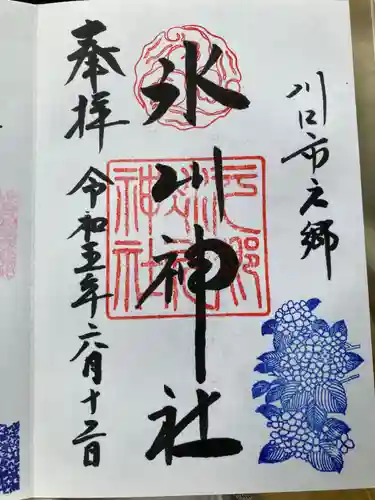 川口市元郷
氷川神社
奉拝
令和五年六月十二日
元郷氷川神社